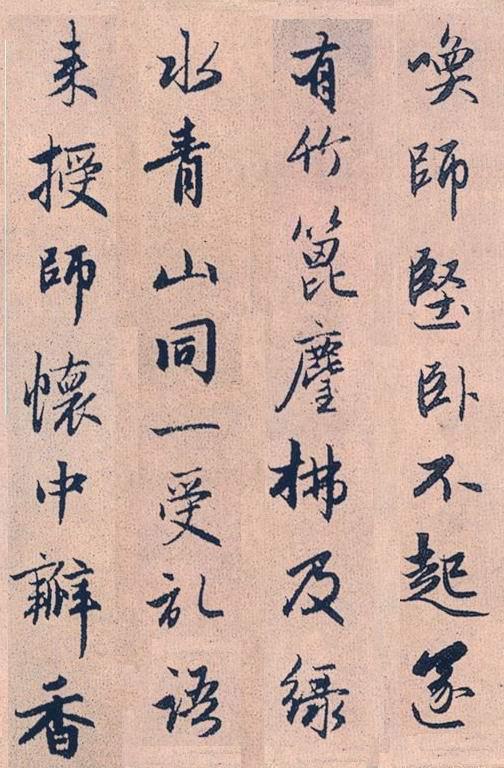 喚師堅卧不起遂
有竹篦麈拂及緑
水青山同一受乱語
来授師懐中瓣香